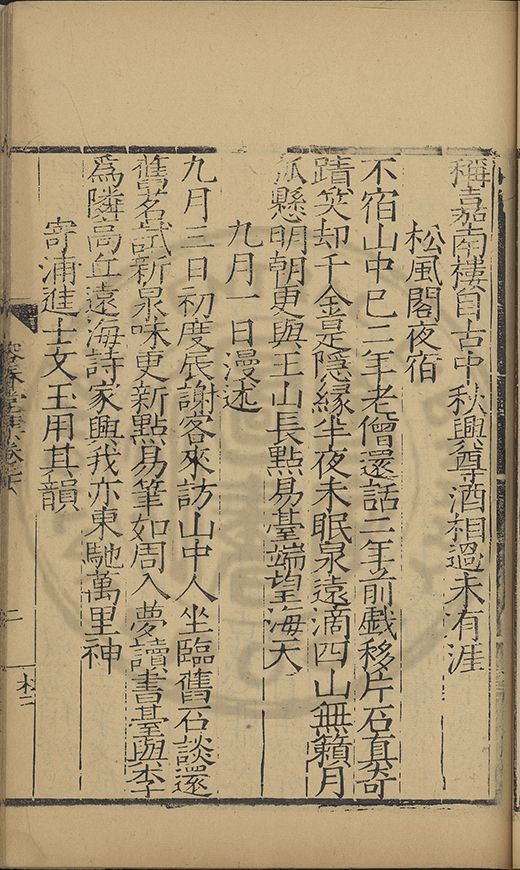 稱嘉南樓自古中秋興尊酒相過未有涯
松風閣夜宿
不宿山中已二年老僧還話二年前戲移片石真奇
蹟笑却千金是隱緣半夜未眠泉遠滴四山無籟月
孤懸明朝更與王山長點易臺端望海天
九月一日漫述
九月三日初度辰謝客來訪山中人坐臨舊石談還
舊茗試新泉味更新點易筆如周入夢讀書臺與李
為隣高丘遠海詩家興我亦東馳萬里神
寄浦進士文玉用其韻
二